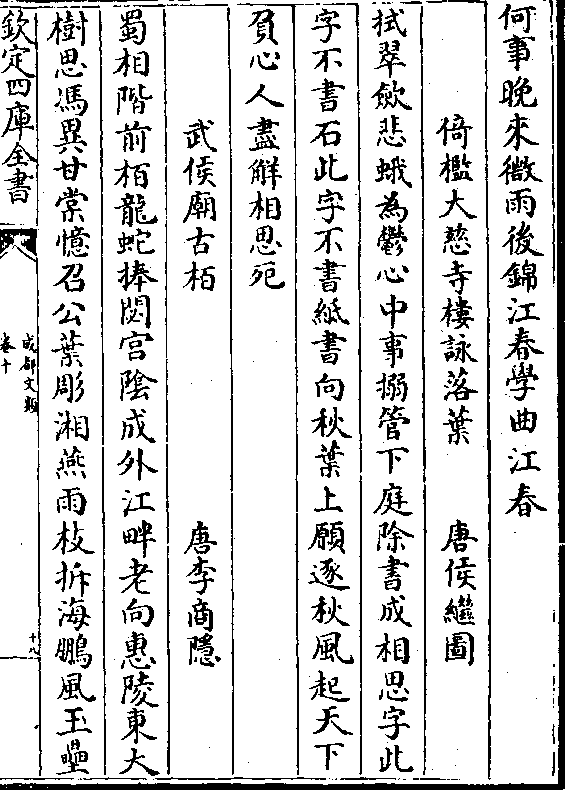 何事晚來微雨後錦江春學曲江春
倚檻大慈寺樓詠落葉 唐侯繼圖
拭翠歛悲蛾為鬱心中事搦管下庭除書成相思字此
字不書石此字不書紙書向秋葉上願逐秋風起天下
負心人盡解相思死
武侯廟古栢 唐李商隱
蜀相階前栢龍蛇捧閟宮陰成外江畔老向惠陵東大
樹思馮異甘棠憶召公葉彫湘燕雨枝拆海鵬風玉壘
欽定四庫全書
成都文類
卷十
十八